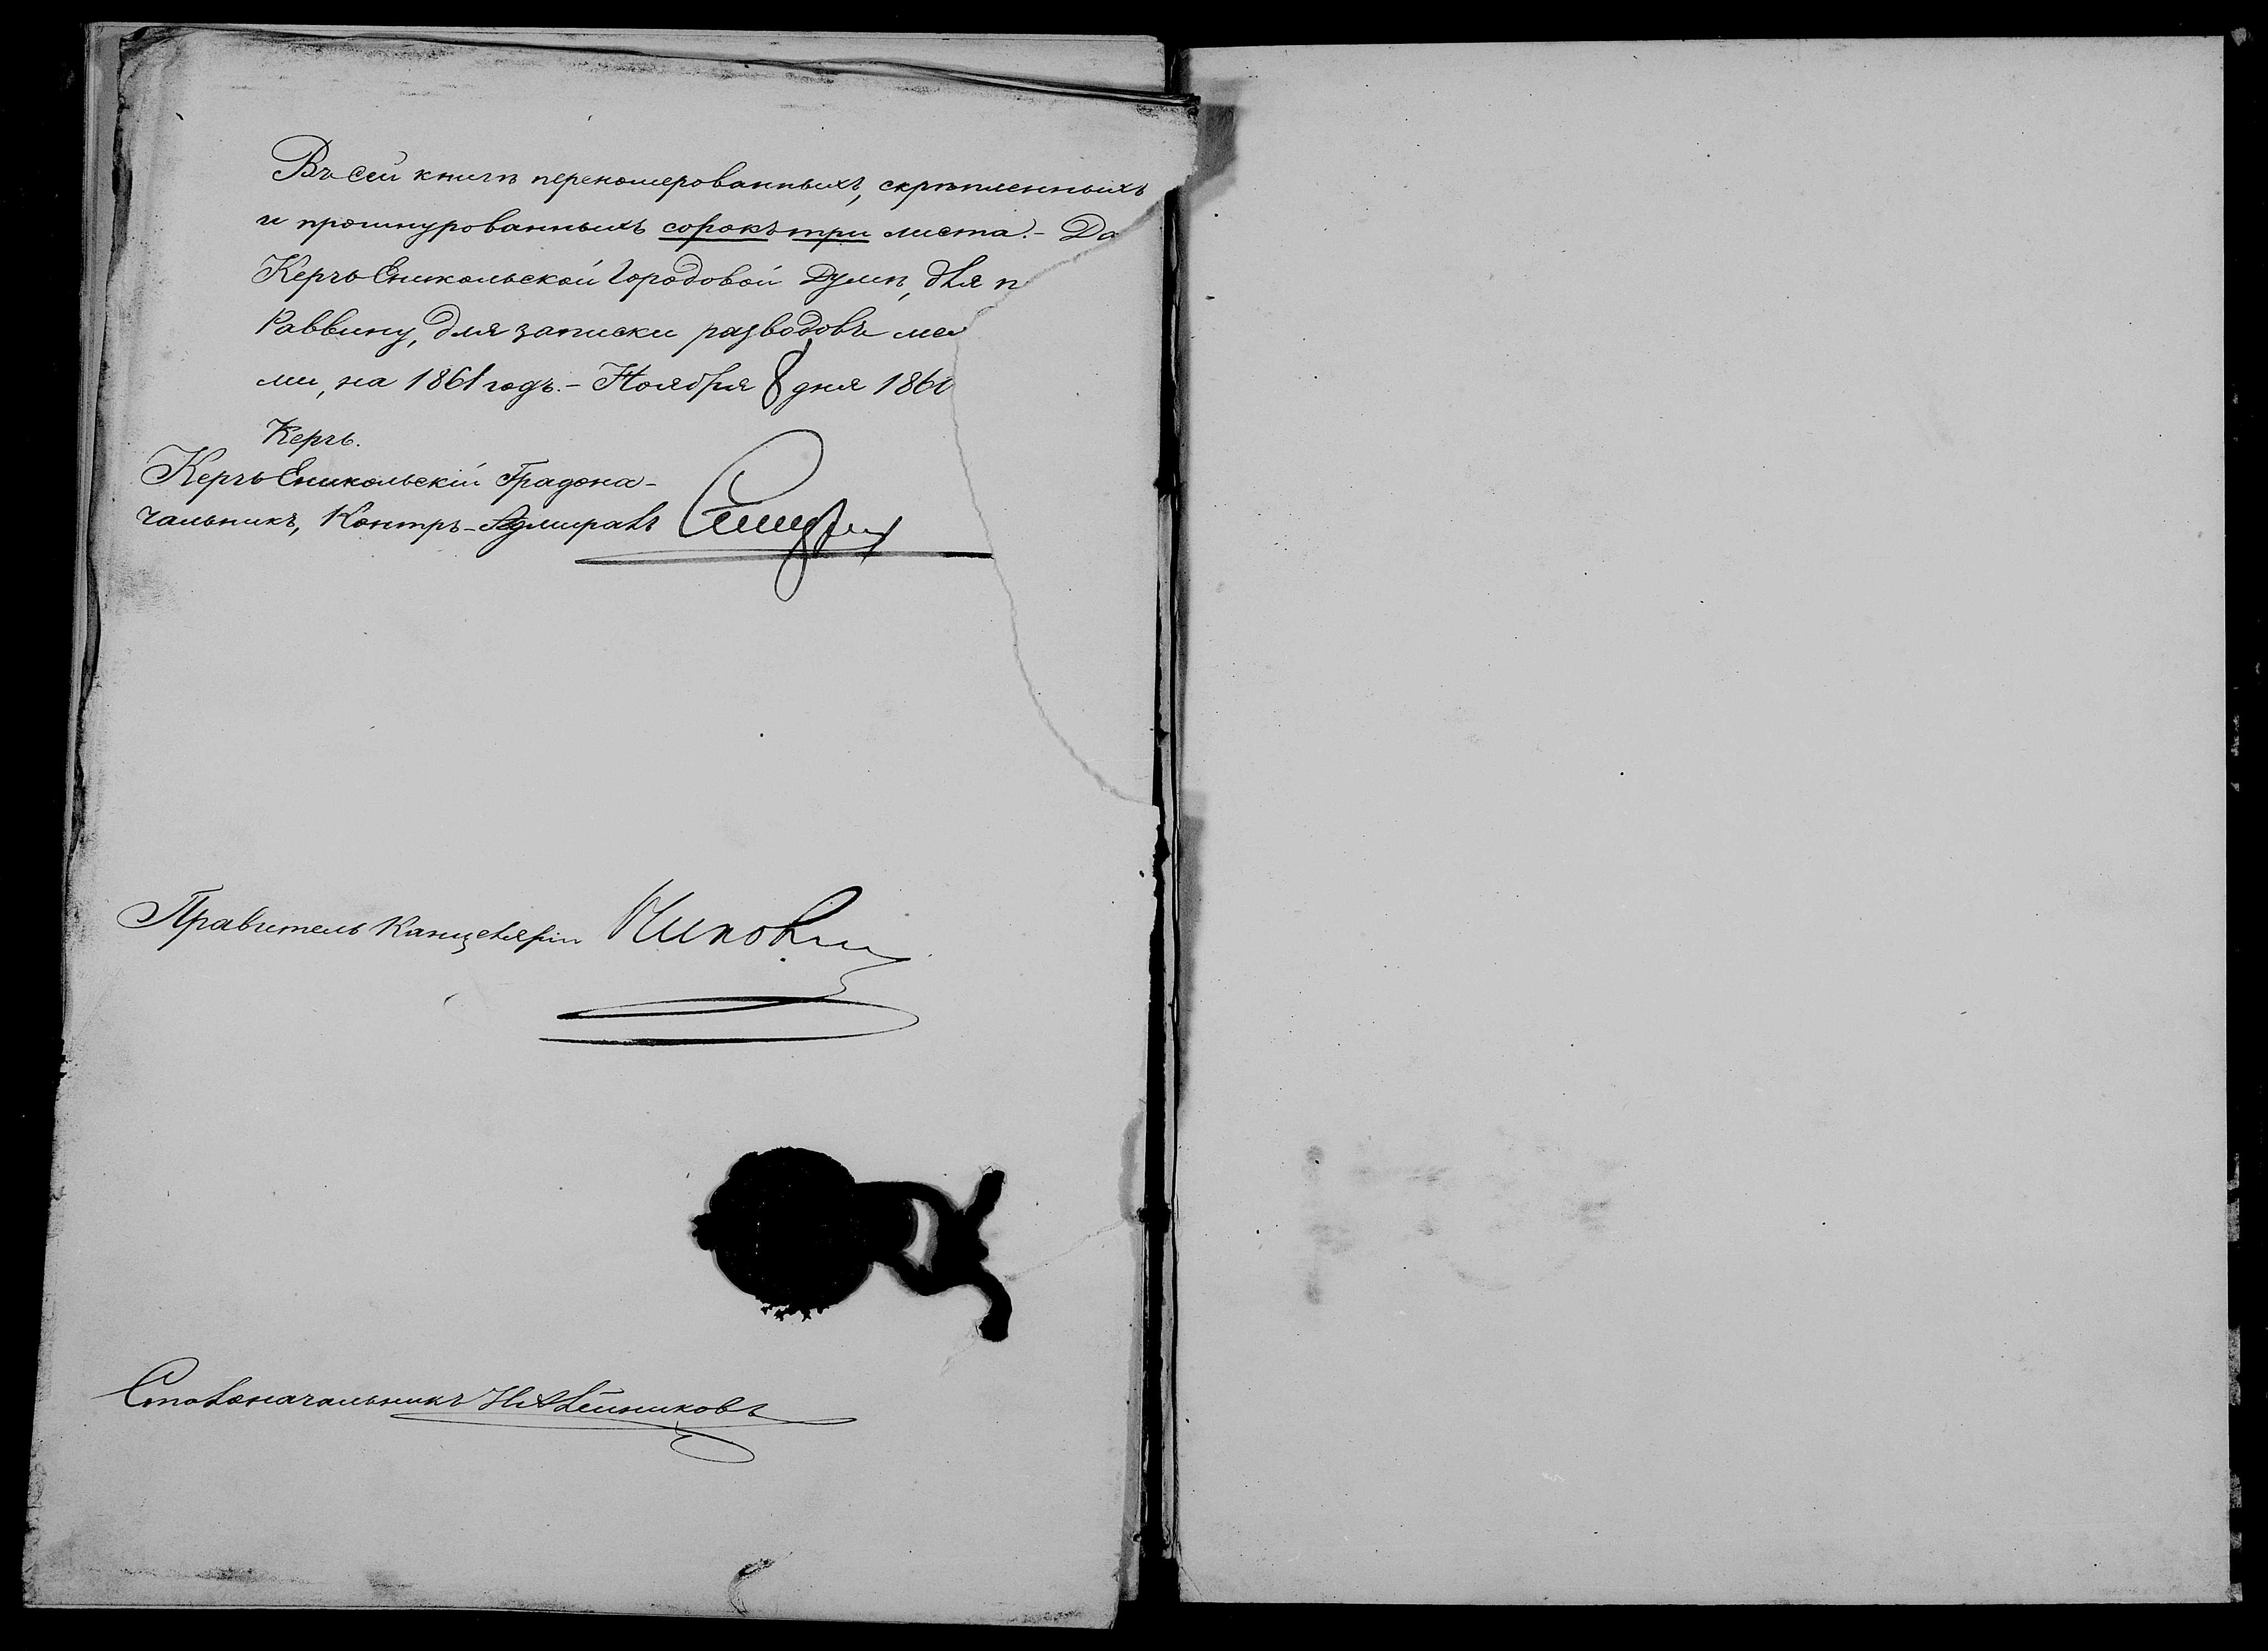 Въ сей книгѣ переномерованныхъ, скрѣпленныхъ
и прошнурованныхъ сорокъ три листа. – Да
Керчь Еникольской Городовой Думѣ, для п
Раввину, для записки разводовъ ме
ми, на 1861 годъ. – Ноября 8 дня 1860
Керчь.
Керчь Еникольскій Градона-
чальникъ, Контръ-Адмиралъ
Правитель Канцеляріи
Столоначальникъ